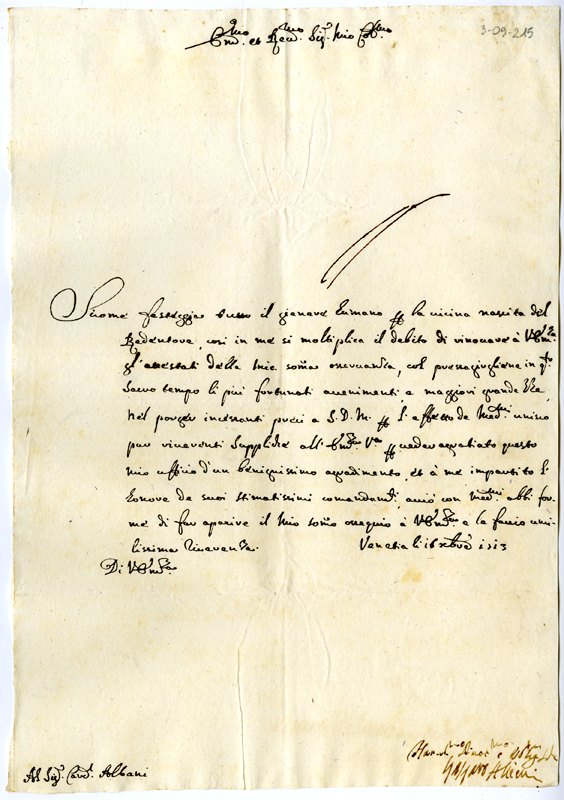 3-09-215
Em.mo et Reu.mo Sig.r Mio Col.mo
Siccome festeggia tutto il genere humano p la vicina nascita del
Redentore, così in me si moltiplica il debito di rinouare à V. Em.za
gl'attestati della mia soma osseruanza, col pressagirgliene in q.to
Sacro tempo li più fortunati auenimenti, e maggiori grandezze,
nel porger incessanti preci a S. D. M. p l'effetto de med.mi unisco
pur riuerenti suppliche all' Em.za V.ra p ueder agradiato questo
mio uffitio d'un benignissimo agradimento, et à me impartito l'
honore de suoi stimatissimi comandam.ti, acciò con med.mi abbi for-
ma di far aparire il mio somo ossequio à V. Em.za e le faccio umi-
lissima riuerenza. Venetia li 16 xbre 1713
Di V. Em.za
Al Sig.r Card. Albani